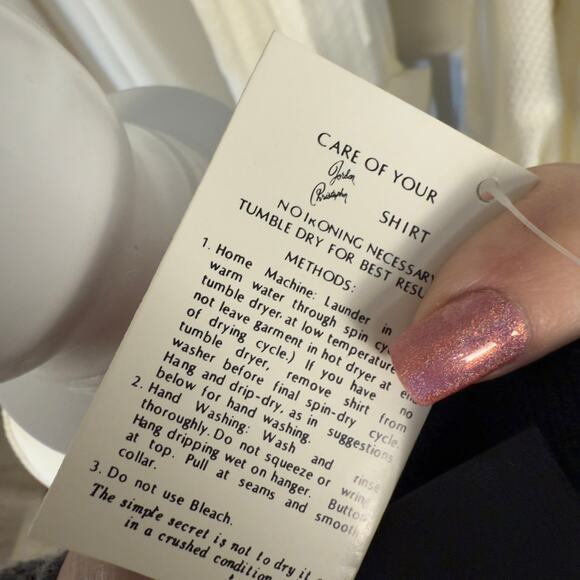 CARE OF YOUR
Jordan
Christopher SHIRT
NO IRONING NECESSARY
TUMBLE DRY FOR BEST RESU
METHODS:
1. Home Machine: Launder in
warm water through spin cyc
tumble dryer, at low temperature
not leave garment in hot dryer at en
of drying cycle.) If you have no
tumble dryer, remove shirt from
washer before final spin-dry cycle.
Hang and drip-dry, as in suggestions
below for hand washing.
2. Hand Washing: Wash and rinse
thoroughly. Do not squeeze or wring
Hang dripping wet on hanger. Button
at top. Pull at seams and smooth
collar.
3. Do not use Bleach.
The simple secret is not to dry it
in a crushed condition